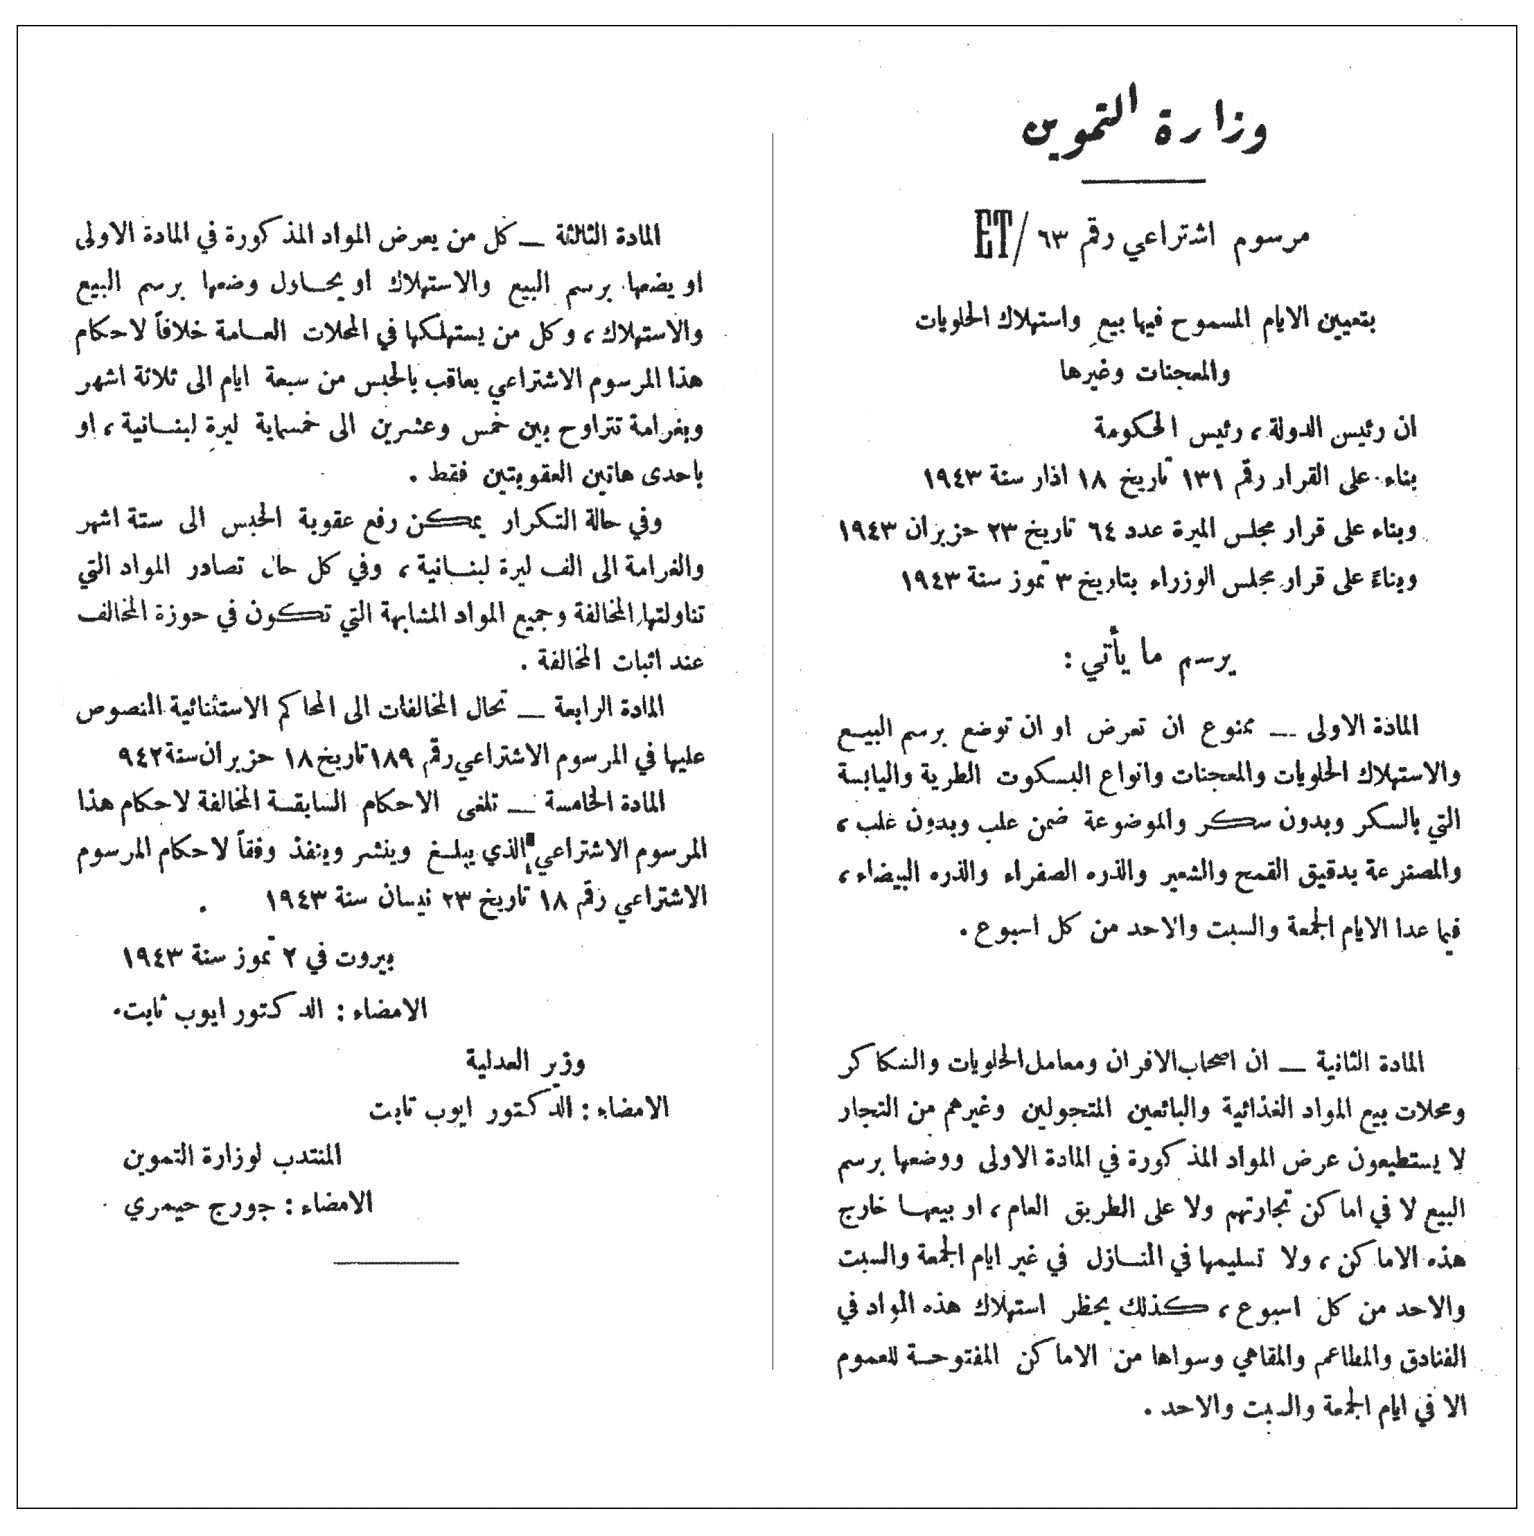 وزارة التموين
مرسوم اشتراعي رقم ٦٣ /ET
بتعيين الايام المسموح فيها بيع واستهلاك الحلويات
والمعجنات وغيرها
ان رئيس الدولة ، رئيس الحكومة
بناء على القرار رقم ١٣١ تاريخ ١٨ اذار سنة ١٩٤٣
وبناء على قرار مجلس الميرة عدد ٦٤ تاريخ ٢٣ حزيران ١٩٤٣
وبناء على قرار مجلس الوزراء بتاريخ ٣ تموز سنة ١٩٤٣
يرسم ما يأتي :
المادة الاولى — ممنوع ان تعرض او ان توضع برسم البيع
والاستهلاك الحلويات والمعجنات وانواع البسكوت الطرية واليابسة
التي بالسكر وبدون سكر والموضوعة ضمن علب وبدون علب ،
والمصنرعة بدقيق القمح والشعير والذره الصفراء والذره البيضاء ،
فيما عدا الايام الجمعة والسبت والاحد من كل اسبوع .
المادة الثانية — ان اصحاب الافران ومعامل الحلويات والسكاكر
ومحلات بيع المواد الغذائية والبائعين المتجولين وغيرهم من التجار
لا يستطيعون عرض المواد المذكورة في المادة الاولى ووضعها برسم
البيع لا في اماكن تجارتهم ولا على الطريق العام ، او بيعها خارج
هذه الاماكن ، ولا تسليمها في المنازل في غير ايام الجمعة والسبت
والاحد من كل اسبوع ، كذلك يحظر استهلاك هذه المواد في
الفنادق والمطاعم والمقاهي وسواها من الاماكن المفتوحة للعموم
الا في ايام الجمعة والسبت والاحد .
المادة الثالثة — كل من يعرض المواد المذكورة في المادة الاولى
او يضعها برسم البيع والاستهلاك او يحاول وضعها برسم البيع
والاستهلاك ، وكل من يستهلكها في المحلات العامة خلافاً لاحكام
هذا المرسوم الاشتراعي يعاقب بالحبس من سبعة ايام الى ثلاثة اشهر
وبغرامة تتراوح بين خمس وعشرين الى خمسماية ليرة لبنانية ، او
باحدى هاتين العقوبتين فقط .
وفي حالة التكرار يمكن رفع عقوبة الحبس الى ستة اشهر
والغرامة الى الف ليرة لبنانية ، وفي كل حال تصادر المواد التي
تناولتها المخالفة وجميع المواد المشابهة التي تكون في حوزة المخالف
عند اثبات المخالفة .
المادة الرابعة — تحال المخالفات الى المحاكم الاستثنائية المنصوص
عليها في المرسوم الاشتراعي رقم ١٨٩ تاريخ ١٨ حزيران سنة ٩٤٢
المادة الخامسة — تلغى الاحكام السابقة المخالفة لاحكام هذا
المرسوم الاشتراعي الذي يبلغ وينشر وينفذ وفقاً لاحكام المرسوم
الاشتراعي رقم ١٨ تاريخ ٢٣ نيسان سنة ١٩٤٣ .
بيروت في ٢ تموز سنة ١٩٤٣
الامضاء : الدكتور ايوب ثابت .
وزير العدلية
الامضاء : الدكتور ايوب ثابت
المنتدب لوزارة التموين
الامضاء : جورج حيمري